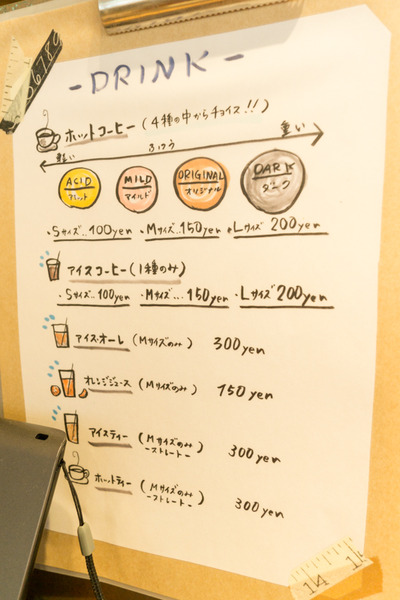 - DRINK -
ホットコーヒー (4種の中からチョイス!!)
軽い ふつう 重い
ACID MILD ORIGINAL DARK
マイルド オリジナル ダーク
・Sサイズ‥100yen ・Mサイズ‥150yen ・Lサイズ 200yen
アイスコーヒー (1種のみ)
・Sサイズ‥100yen ・Mサイズ…150yen ・Lサイズ 200yen
アイス・オーレ (Mサイズのみ) 300yen
オレンジジュース (Mサイズのみ) 150yen
アイスティー (Mサイズのみ -ストレート-) 300yen
ホットティー (Mサイズのみ -ストレート-) 300yen
14